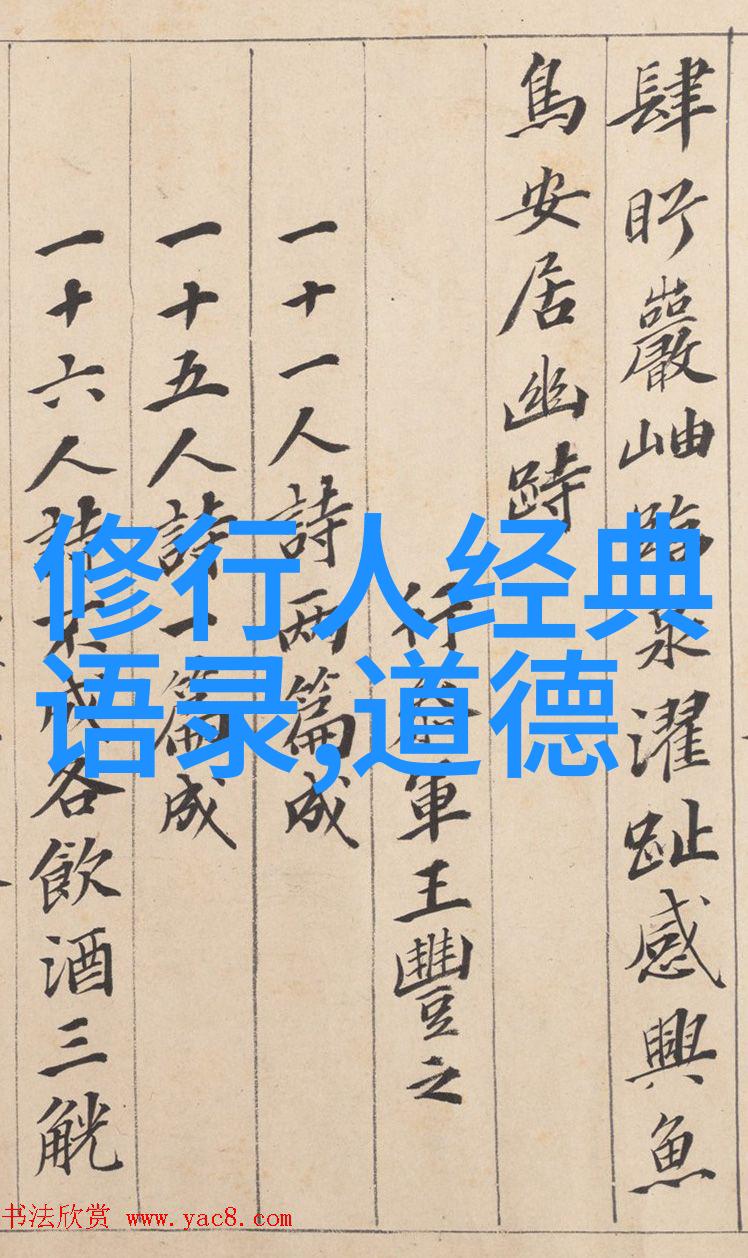 肆眄巖岫臨泉濯趾感興魚
鳥安居幽跱
行參軍王豐之
一十一人詩兩篇成
一十五人詩一篇成
一十六人詩不成各飲酒三觥
修行人经典
语录,道德
书法欣赏 www.yac8.com